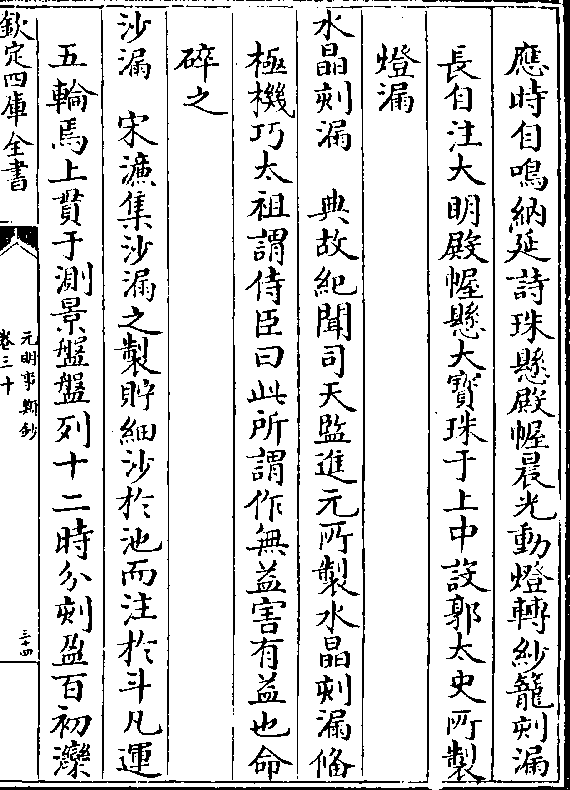 應時自鳴納延詩珠懸殿幄晨光動燈轉紗籠刻漏
長自注大明殿幄懸大寶珠于上中設郭太史所製
燈漏
水晶刻漏　典故紀聞司天監進元所製水晶刻漏俻
極機巧太祖謂侍臣曰此所謂作無益害有益也命
碎之
沙漏　宋濂集沙漏之製貯細沙於池而注於斗凡運
五輪焉上貫于測景盤盤列十二時分刻盈百初濼
欽定四庫全書
元明事類鈔
卷三十
三十四